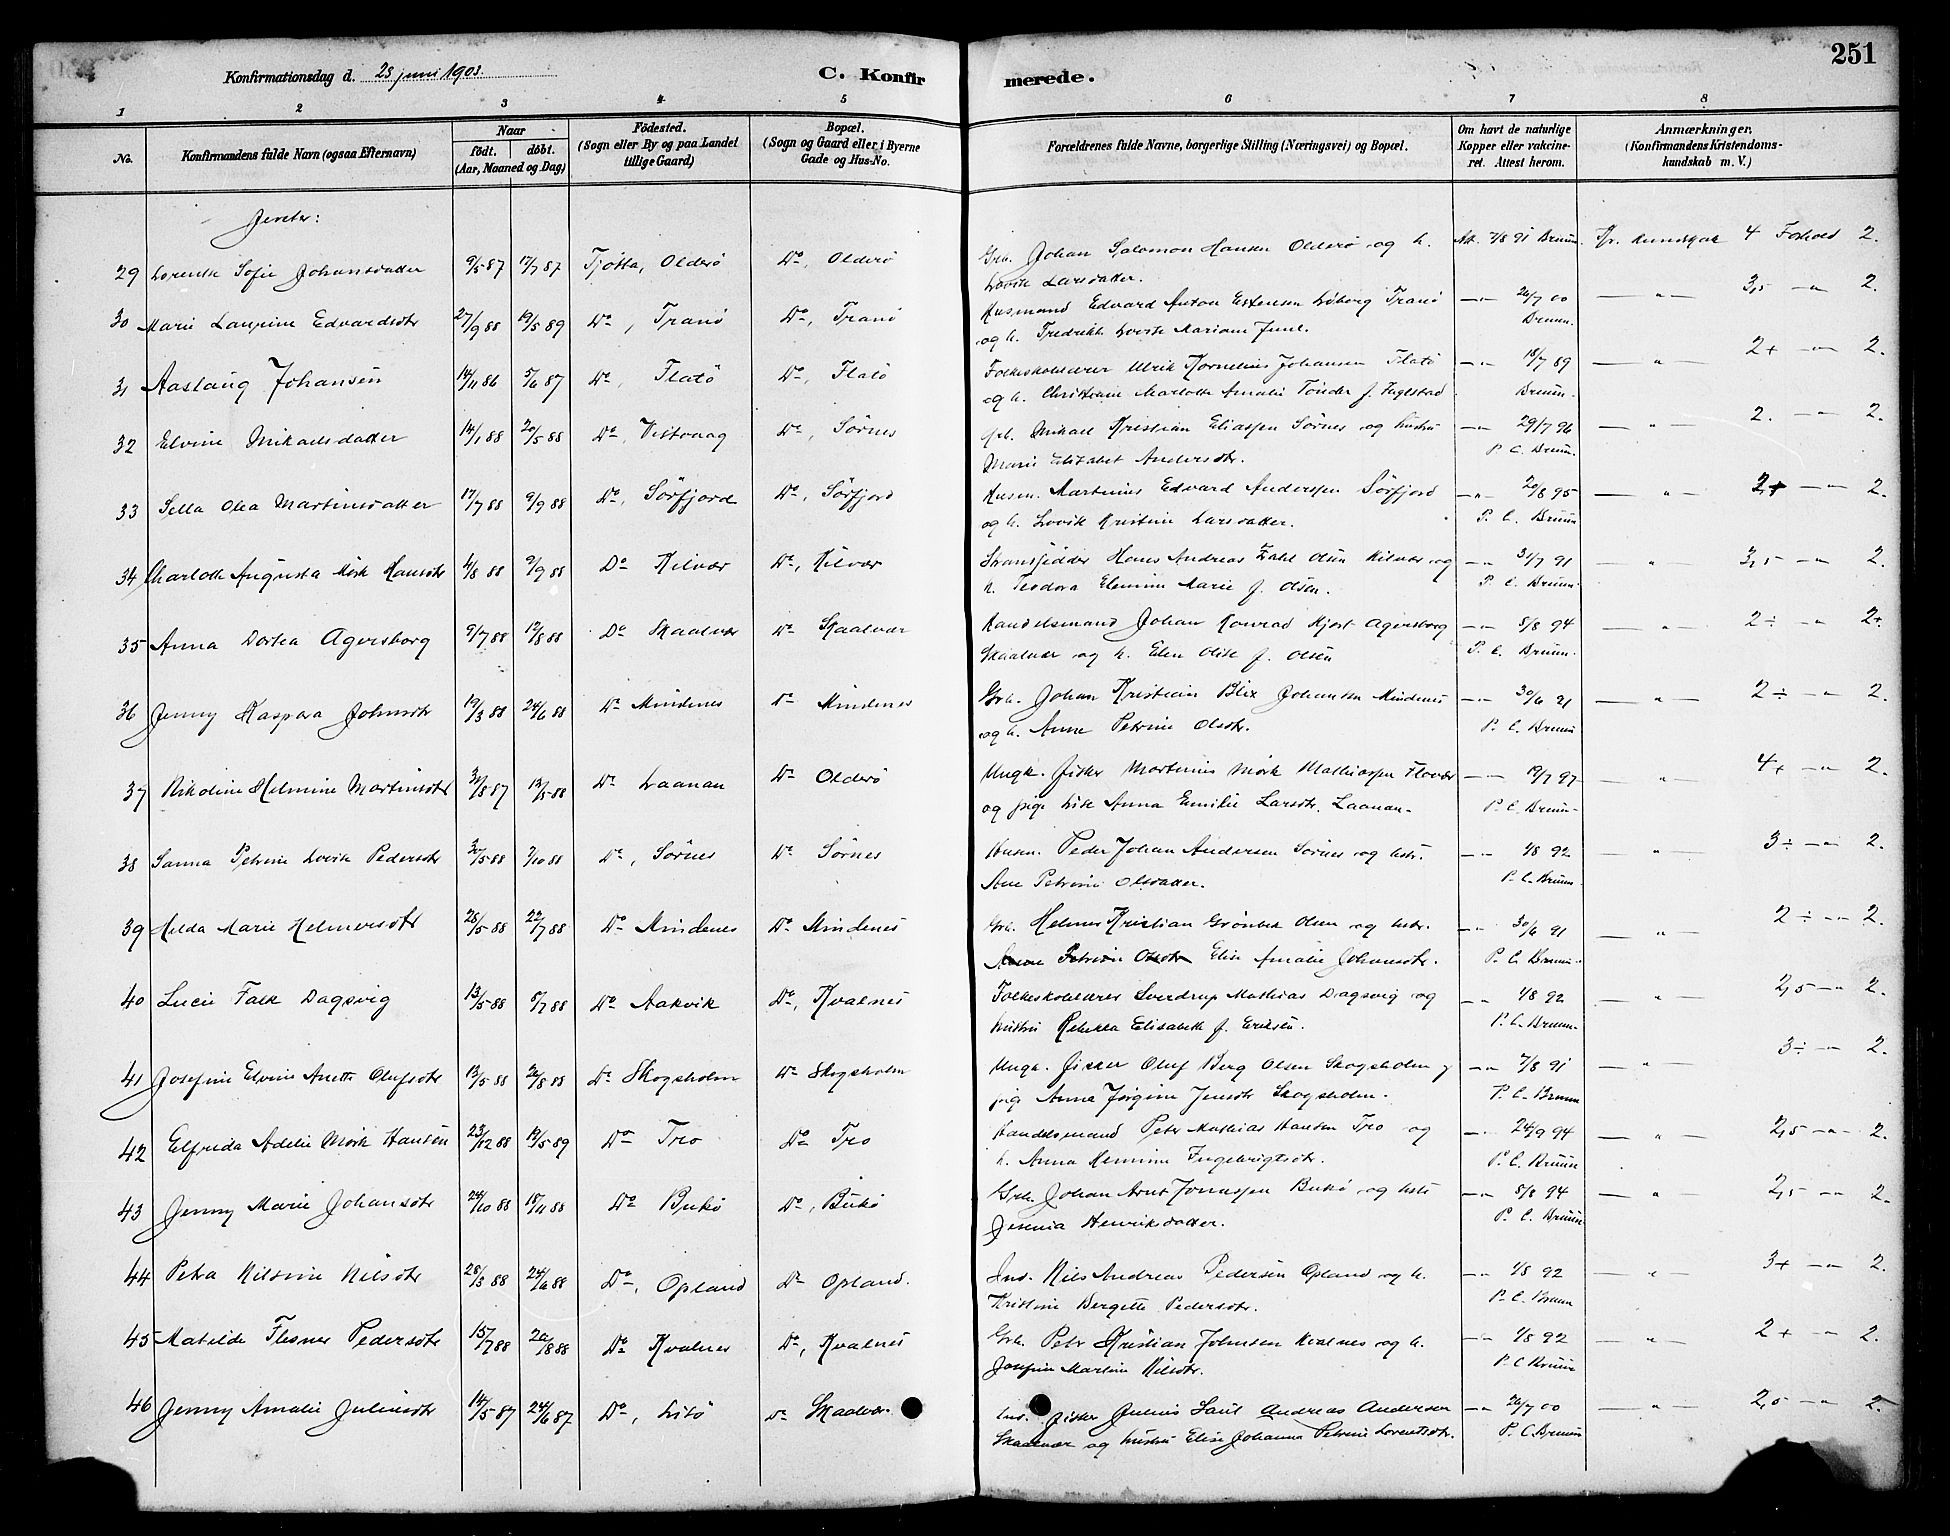 251
Konfirmationsdag d. 28 juni 1903.
C. Konfirmerede.
1 2 3 4 5 6 7 8
No. Konfirmandens fulde Navn (ogsaa Efternavn) Naar födt. döbt. (Aar, Maaned og Dag) Födested. (Sogn eller By og paa Landet tillige Gaard) Bopæl. (Sogn og Gaard eller i Byerne Gade og Hus-No. Forældrenes fulde Navne, borgerlige Stilling (Næringsvei) og Bopæl. Om havt de naturlige Kopper eller vakcineret. Attest herom. Anmærkninger. (Konfirmandens Kristendomskundskab m. V.)
Jenter:
29 Lorense Sofie Johansdatter 9/5 87 17/7 87 Tjøtta, Olderø Do, Olderø Grb. Johan Salomon Hansen Olderø og h. Att. 7/8 91 Bruun. Kr. Kundskab 4 Forhold 2.
Lovise Larsdatter.
30 Marie Laurine Edvardsdtr 27/9 88 19/5 89 Do, Tranø Do, Tranø Husmand Edvard Anton Estensen Tranø 26/7 00 3,5 2.
og h. Fredrikke Lovise Mariane Bruun.
31 Aaslaug Johansen 14/11 86 5/6 87 Do, Flatø Do, Flatø Folkeskolelærer Ulrik Kornelius Johansen Flatø 18/7 89 2+ 2.
og h. Christiane Marlotte Amalie Tønder f. Bruun.
32 Elvine Mikaelsdatter 14/1 88 20/5 88 Do, Vistvaag Do, Sørnes Mikael Kristian Eliassen Sørnes og hustru 29/7 96 2. 2.
Marie Elisabet Andersdtr. P. C. Bruun.
33 Sella Olea Martinsdatter 17/7 88 9/9 88 Do, Sørfjord Do, Sørfjord Husm. Martinus Edvard Anderssen Sørfjord 20/8 95 2+ 2.
og h. Lovise Kristine Larsdatter. P. C. Bruun
34 Charlotte Augusta Mørk Hansdtr 4/8 88 9/9 88 Do Kilvær Do, Kilvær Strandsidder Hans Andreas Olsen Kilvær og 31/7 91 3,5 2.
h. Teodora Elenine Marie f. Olsen. P. C. Bruun.
35 Anna Dortea Agersborg 9/7 88 12/8 88 Do Skaalvær Do Skaalvær Handelsmand Johan Konrad Hjort Agersborg 8/8 94 2÷ 2+
Skaalvær og h. Elen Olise f. Olsen P. C. Bruun.
36 Jenny Kaspara Johnsdtr 19/3 88 24/6 88 Do Mindenes Do Mindenes Grb. Johan Kristian Blix Johansen Mindenes 30/6 91 2÷ 2.
og h. Anne Petrine Olsdtr. P. C. Bruun
37 Nikoline Helmine Martinsdtr 30/8 87 13/5 88 Do Laanan Do Olderø Ungk. fisker Martinus Mørk Mathiassen Flovær 19/7 97 4+ 2.
og pige Anna Emilie Larsdtr. Laanan. P. C. Bruun
38 Sanna Petrine Lovise Pedersdtr 30/5 88 7/10 88 Do, Sørnes Do Sørnes Husm. Peder Johan Andersen Sørnes og hstr. 1/8 92 3÷ 2.
Ane Petrine Olsdatter. P. C. Bruun
39 Helda Marie Helmersdtr 28/5 88 22/7 88 Do Mindenes Do Mindenes Grb. Helmer Kristian Grønbek Olsen og hstr. 30/6 91 2÷ 2.
Anne Petrine Olsdtr Elise Amalie Johansdtr. P. C. Bruun.
40 Lucie Falk Dagsvig 13/5 88 8/7 88 Do Aakvik Do, Kvalnes Folkeskolelærer Sverdrup Mathias Dagsvig og 1/8 92 2,5 2.
hustru Rebekka Elisabeth f. Eriksen. P. C. Bruun.
41 Josefine Elvine Anette Olufsdtr 13/5 88 26/8 88 Do Skogsholm Do Skogsholm Ungk. fisker Oluf Berg Olsen Skogsholm og 7/8 91 3÷ 2.
pige Anna Jørgine Jensdtr Skogsholm. P. C. Bruun
42 Elfrida Adelie Mørk Hansen 23/12 88 19/5 89 Do Tro Do Tro Handelsmand Peter Mathias Hansen Tro og 24/9 94 2,5 2.
h. Anna Hennine Ingebrigtsdtr. P. C. Bruun
43 Jenny Marie Johansdtr 24/10 88 18/11 88 Do Bukø Do, Bukø Grb. Johan Arnt Jonassen Bukø og hstr 8/8 94 2,5 2.
Jesenia Henriksdatter. P. C. Bruun
44 Petra Nilsine Nilsdtr 28/3 88 24/6 88 Do, Opland Do Opland. Ins. Nils Andreas Pedersen Opland og h. 1/8 92 3+ 2.
Kristine Bergitte Pedersdtr. P. C. Bruun
45 Matilde Flesner Pedersdtr 15/7 88 20/8 88 Do Kvalnes Do, Kvalnes Grb. Peter Kristian Johnsen Kvalnes og h. 1/8 92 2+ 2.
Josefine Martine Nilsdtr. P. C. Bruun
46 Jenny Amalie Juliusdtr 14/5 87 24/6 87 Do, Do Skaalvær Ins. fisker Julius Saul Andreas Andersen 26/7 00 2,5 2.
Skaalvær og hustru Elise Johanna Petrine Lorentsdtr. P. C. Bruun